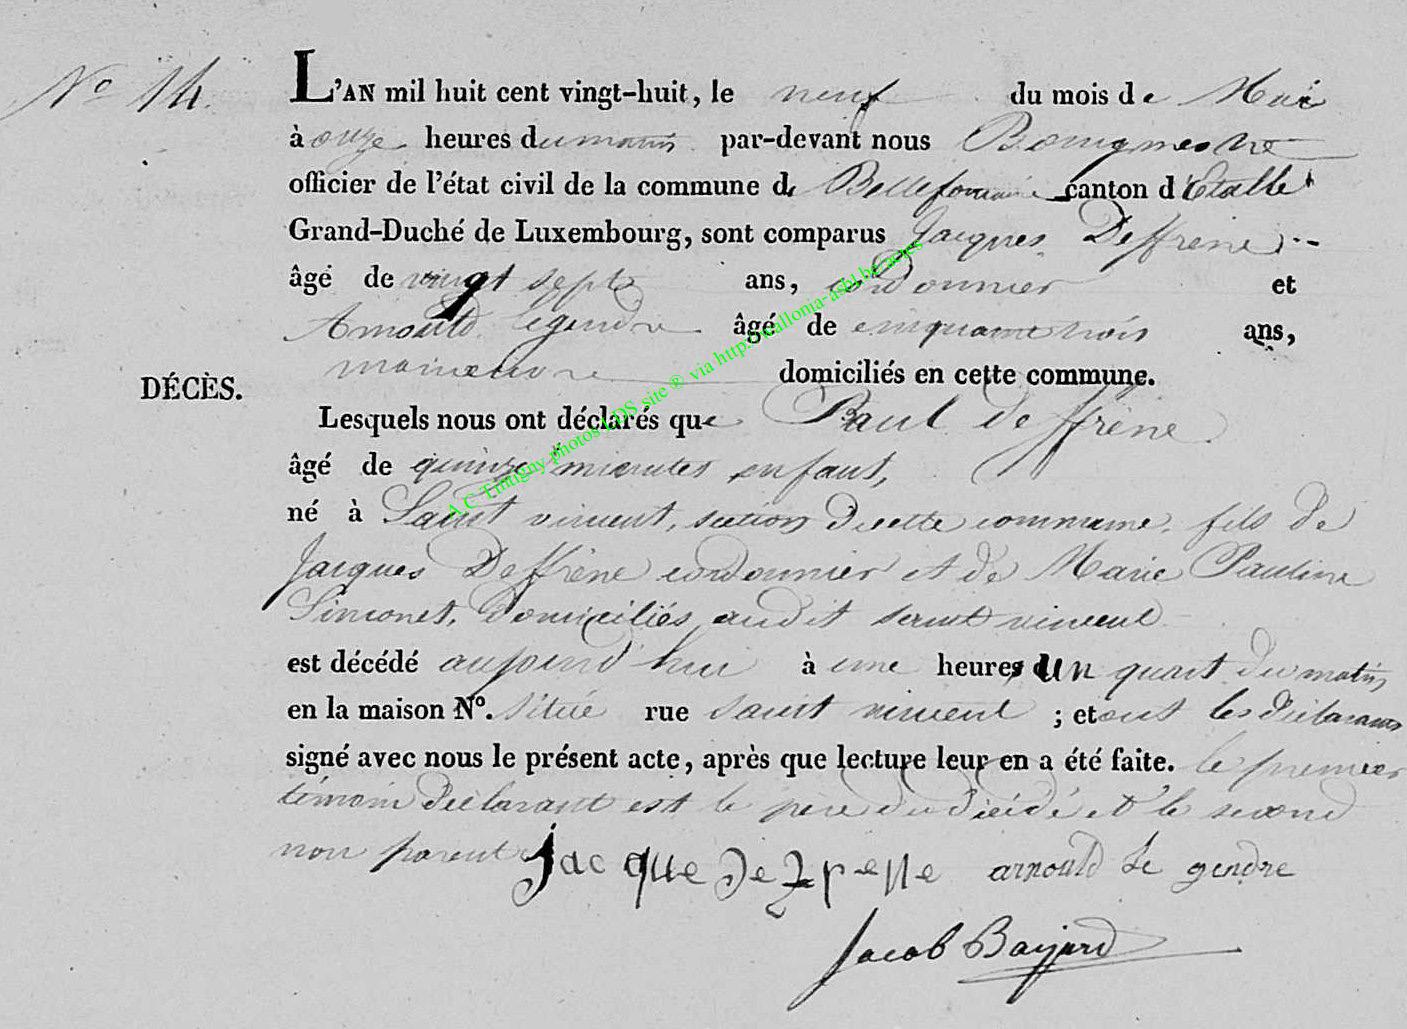 N° 14.
L'AN mil huit cent vingt-huit, le neuf du mois de Mai
à onze heures du matin par-devant nous Bourgmestre
officier de l'état civil de la commune de Bellefontaine canton d'Etalle
Grand-Duché de Luxembourg, sont comparus Jacques Deffrene
âgé de vingt sept ans, cordonnier et
Arnould Legendre âgé de cinquante trois ans,
manoeuvre domiciliés en cette commune.
DÉCÈS.
Lesquels nous ont déclarés que Paul Deffrène
âgé de quinze minutes enfant,
né à Saint vincent, section de cette commune, fils de
Jacques Deffrène cordonnier et de Marie Pauline
Simonet, domiciliés audit saint vincent
est décédé aujourd'hui à une heures un quart du matin
en la maison N°. située rue saint vincent ; et ont les déclarans
signé avec nous le présent acte, après que lecture leur en a été faite. le premier
témoin déclarant est le père du décédé et le second
non parent
Jacque Defrene arnould Le gendre
Jacob Bayard
A.C Tintigny photos LDS site ® via http://wallonia-asbl.be/actes